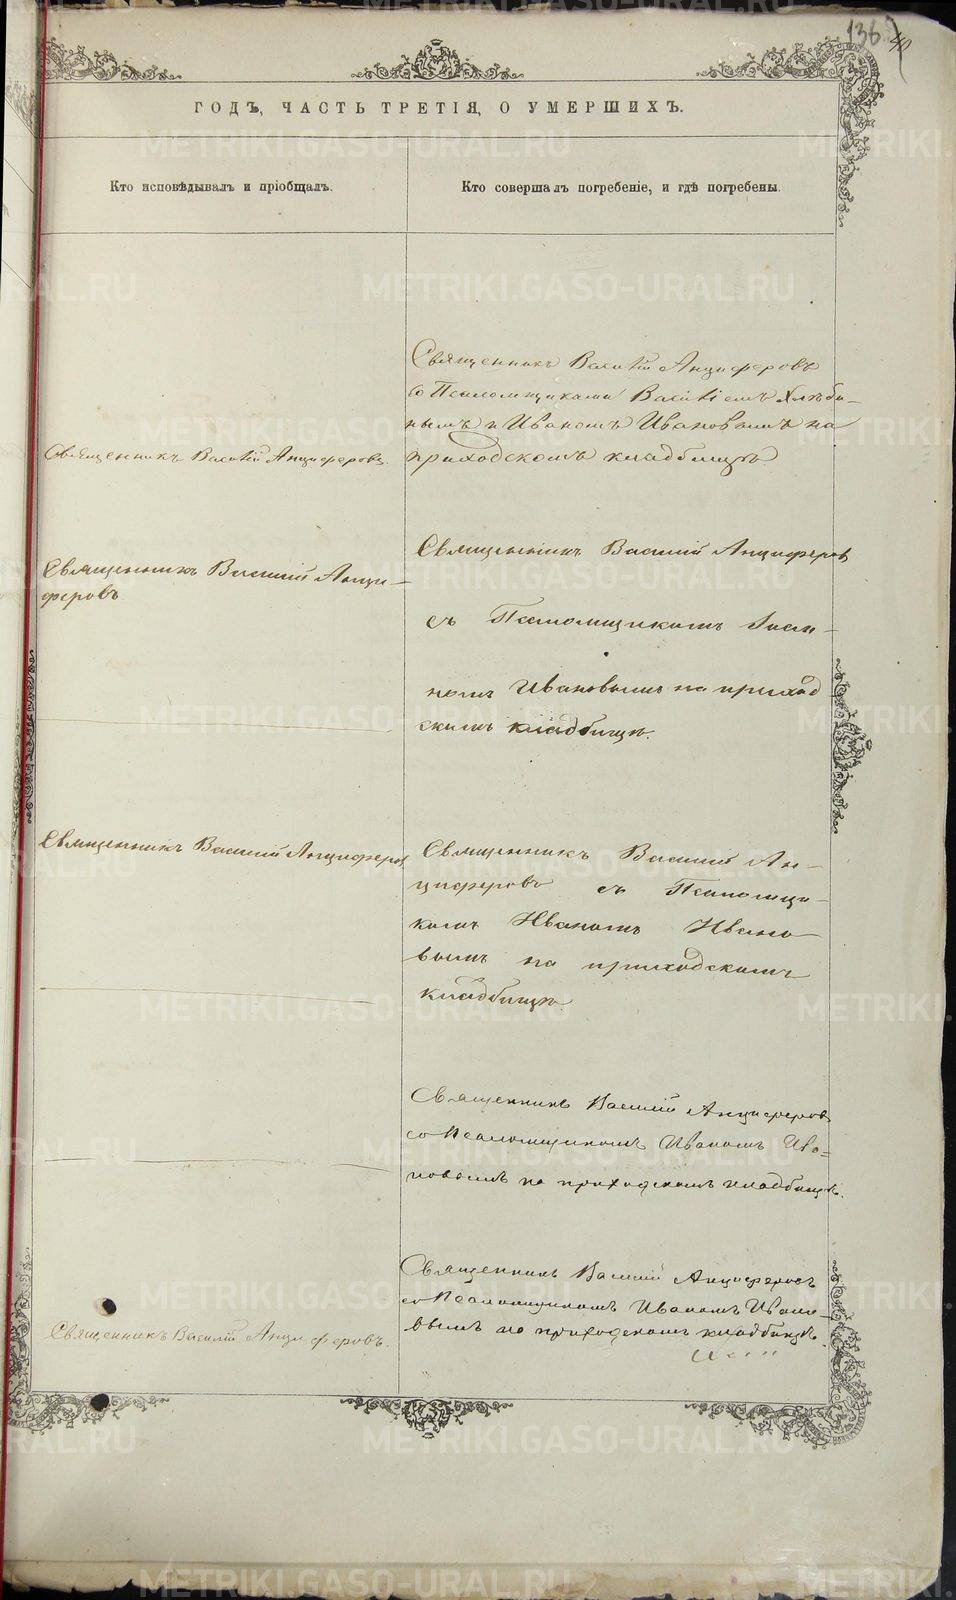 136
40
ГОДЪ, ЧАСТЬ ТРЕТІЯ, О УМЕРШИХЪ.
Кто исповѣдывалъ и пріобщалъ.
Кто совершалъ погребеніе, и гдѣ погребены.
Священникъ Василій Анциферовъ
со Псаломщиками Василіемъ Хлѣби-
нымъ и Иваномъ Ивановымъ на
приходскомъ кладбищѣ
Священникъ Василій Анциферовъ.
Священникъ Василій Анци-
феровъ
Священникъ Василій Анциферов
съ Псаломщикомъ Іоан-
номъ Ивановымъ на приход
скомъ кладбищѣ.
Священникъ Василій Анциферов
Священникъ Василій Ан-
циферовъ съ Псаломщи-
комъ Иваномъ Ивано-
вымъ на приходскомъ
кладбищѣ
Священникъ Василій Анциферовъ
со Псаломщикомъ Иваномъ Ива-
новымъ на приходскомъ кладбищѣ.
Священникъ Василій Анциферовъ.
Священникъ Василій Анциферовъ
со Псаломщикомъ Иваномъ Ивано
вымъ на приходскомъ кладбищѣ.
METRIKI.GASO-URAL.RU